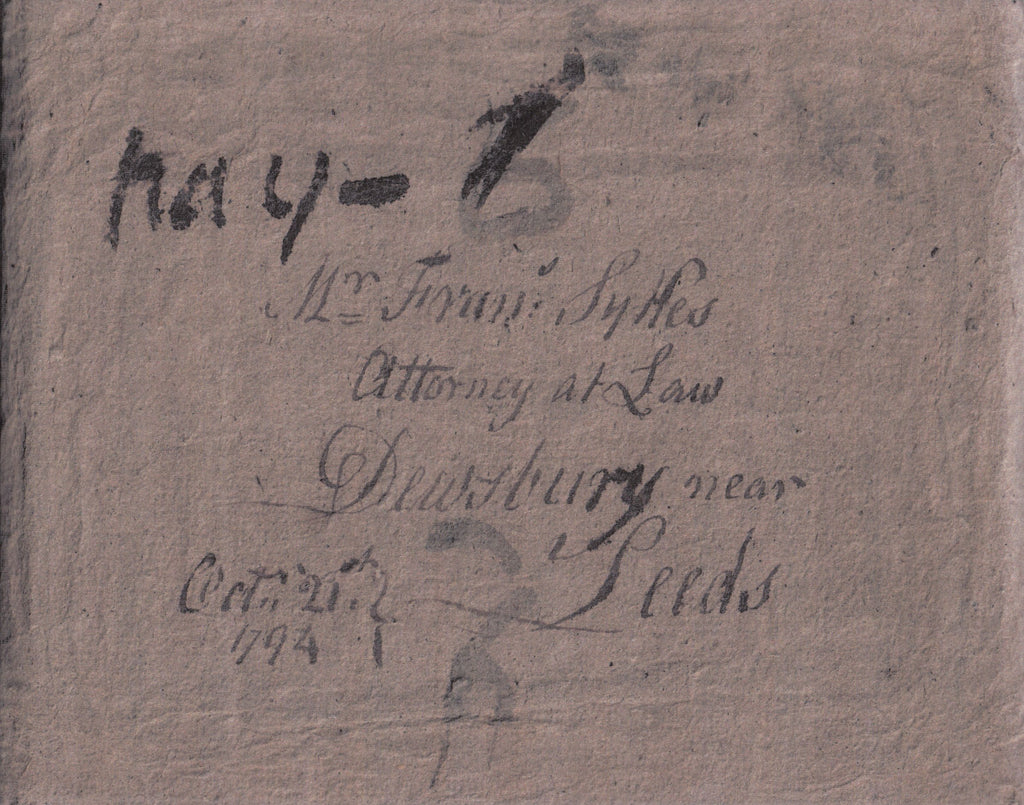 hay - 1
Mr Sykes
Attorney at Law
Dewsbury near
Leeds
Octr 21st
1794